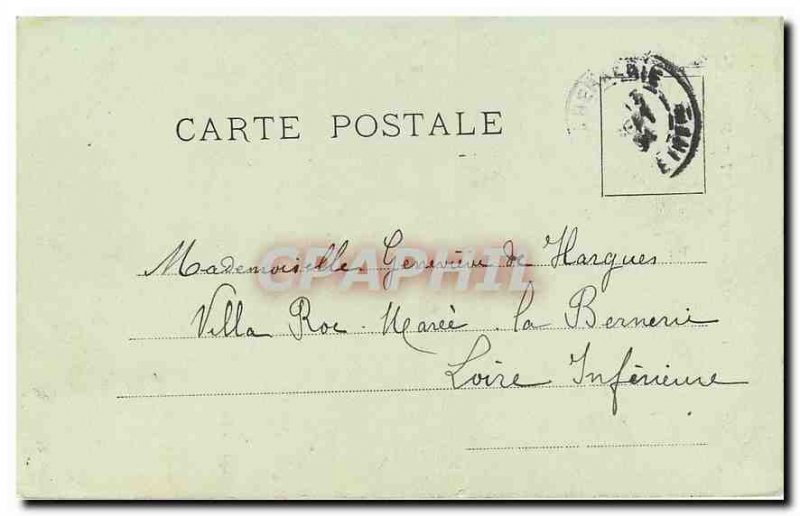 CARTE POSTALE
Mademoiselle Geneviève de Hargues
CPAPHIL
Villa Roc-Marée. la Bernerie
Loire Inférieure